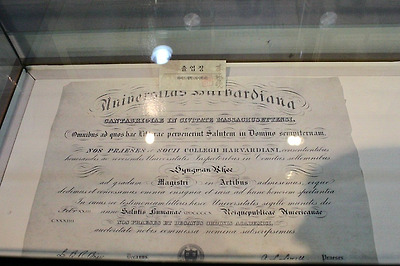 졸업장
Universitas Harvardiana
CANTABRIGIAE IN CIVITATE MASSACHUSETTENSI.
Omnibus ad quos hae literae pervenerint Salutem in Domino sempiternam.
NOS PRAESES et SOCII COLLEGII HARVARDIANI, consentientibus
honorandis ac reverendis Universitatis Inspectoribus in Comitiis sollemnibus
Syngman Rhee
ad gradum Magistri in Artibus admisimus, eique
dedimus et concessimus omnia insignia et iura ad hunc honorem spectantia.
In cuius rei testimonium litteris hisce Universitatis sigillo munitis die
Salutis Humanae Reique publicae Americanae
NOS PRAESES ET DECANUS ORDINIS ACADEMICI,
auctoritate nobis commissa nomina subscripsimus.
Praeses.